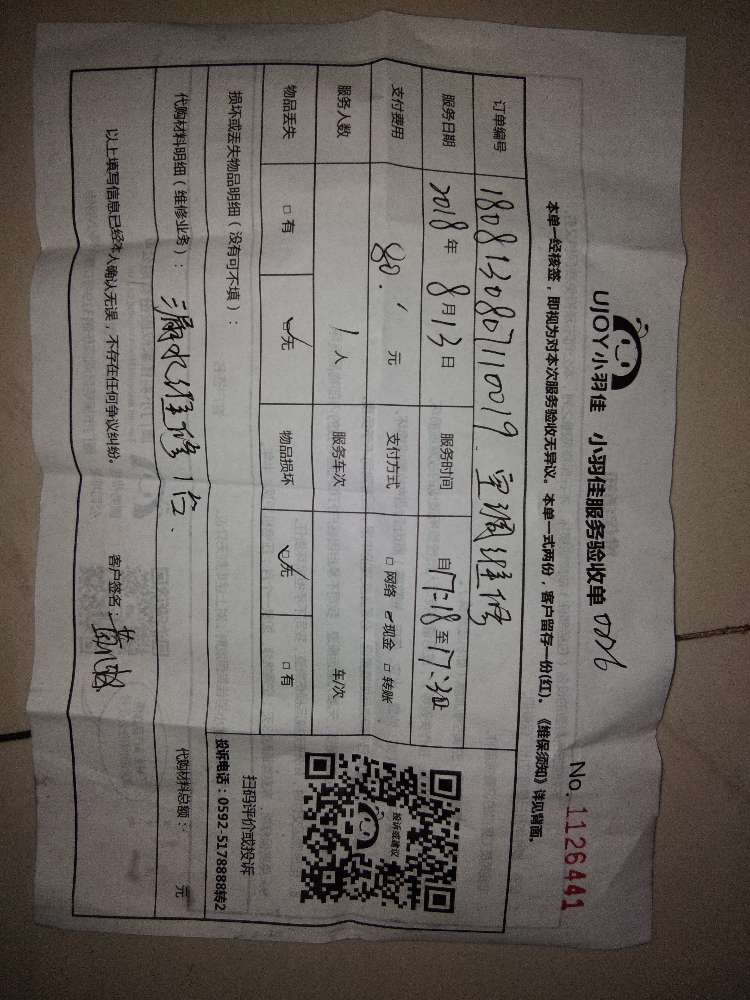 UJOY小羽佳 小羽佳服务验收单 0026
No. 1126441
本单一经核签，即视为对本次服务验收无异议。本单一式两份，客户留存一份(红)。《维保须知》详见背面。
订单编号 1808130807110019. 空调维修
服务日期 2018年 8月13日 服务时间 自17:18至17:32
支付费用 80. 元 支付方式 □ 网络 ☑ 现金 □ 转账
服务人数 1 人 服务车次 车/次
物品丢失 □ 有 ☑ 无 物品损坏 ☑ 无 □ 有
投诉或建议
扫码评价或投诉
投诉电话：0592-5178888转2
损坏或丢失物品明细（没有可不填）：
代购材料明细（维修业务）： 漏水维修1台. 代购材料总额： 元
以上填写信息已经本人确认无误，不存在任何争议纠纷。 客户签名：